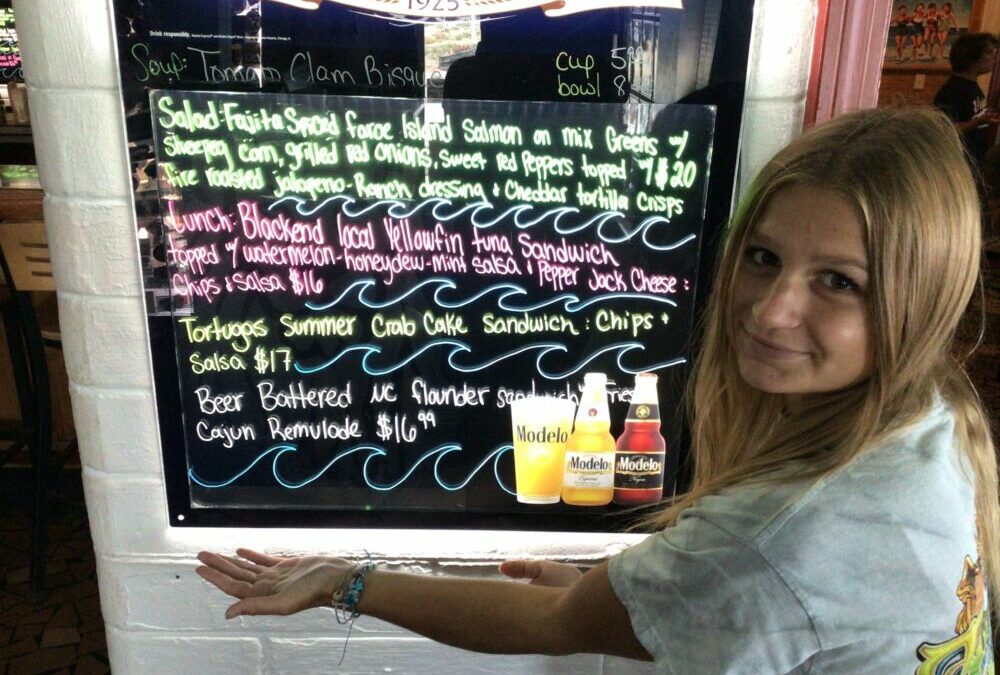 1925
Drink responsibly.
Soup: Tomato Clam Bisque cup 5.99
bowl 8
Salad: Fajita Spiced faroe Island Salmon on mix Greens w/
Sheepeg corn, grilled red onions, sweet red peppers topped w/ $20
fire roasted jalapeno-Ranch dressing & Cheddar tortilla Crisps
Lunch: Blackend local Yellowfin tuna Sandwich
topped w/ watermelon-honeydew-mint salsa & Pepper Jack Cheese :
Chips & Salsa $16
Tortuggs Summer Crab Cake Sandwich : Chips +
Salsa $17
Beer Battered NC flounder sandwich w/ Fries
Cajun Remulade $16.99
Modelo
Modelo
Especial
Modelo
Negra